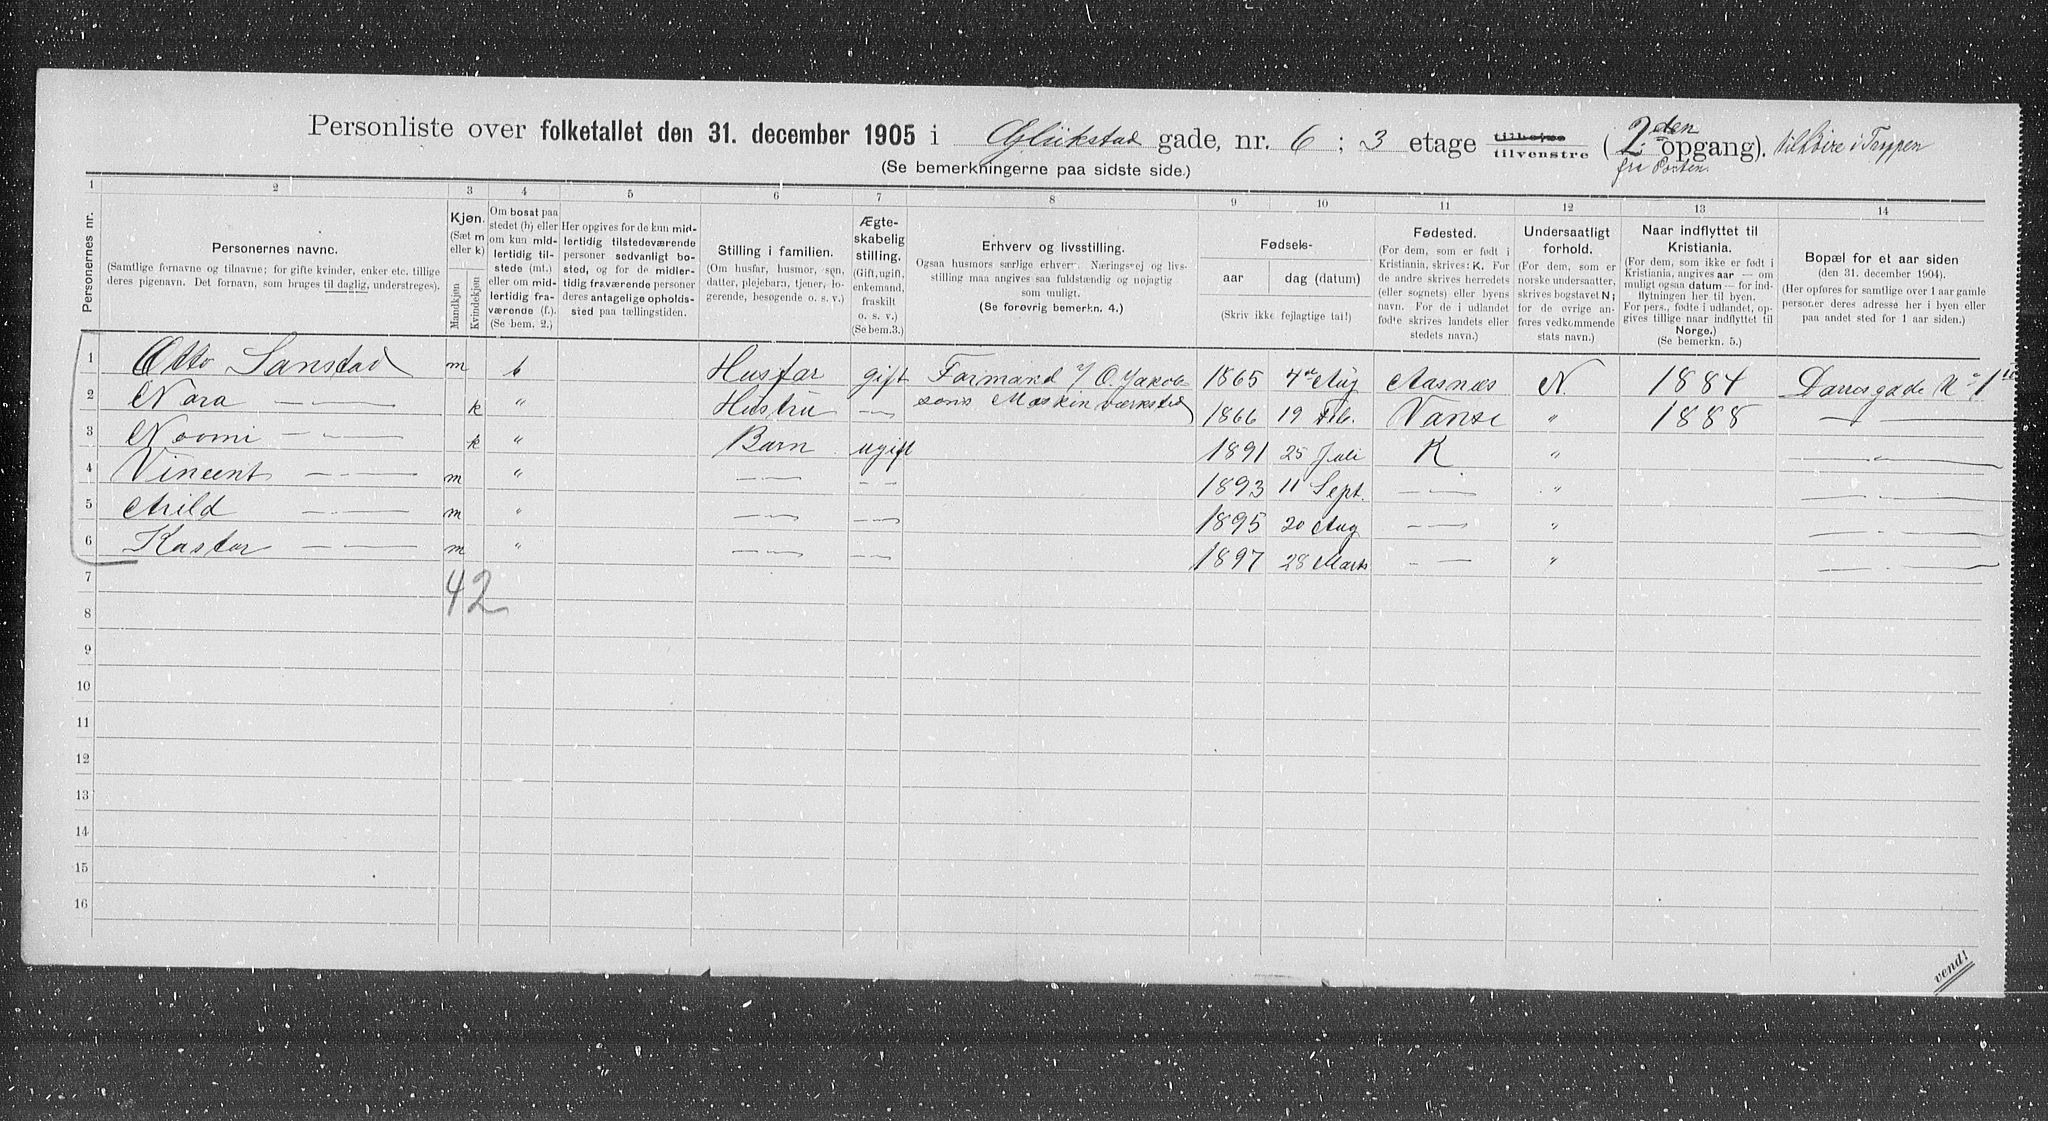 Personliste over folketallet den 31. december 1905 i Glükstad gade, nr. 6 ; 3 etage tilhøjre tilvenstre ( 2 den opgang). tilhöire i Trappen
(Se bemerkningerne paa sidste side.) fra Porten
1 2 3 4 5 6 7 8 9 10 11 12 13 14
Personernes nr.
Personernes navne.
(Samtlige fornavne og tilnavne; for gifte kvinder, enker etc. tillige
deres pigenavn. Det fornavn, som bruges til daglig, understreges).
Kjøn.
(Sæt m
eller k)
Mandkjøn
Kvindekjøn
Om bosat paa
stedet (b) eller
om kun mid-
lertidig til-
stede (mt.)
eller om mid-
lertidig fra-
værende (f.).
(Se bem. 2.)
Her opgives for de kun mid-
lertidig tilstedeværende
personer sedvanlig bo-
sted, og for de midler-
tidig fraværende personer
deres antagelige opholds-
sted paa tællingstiden.
Stilling i familien.
(Om husfar, husmor, søn,
datter, plejebarn, tjener, lo-
gerende, besøgende o. s. v.)
Ægte-
skabelig
stilling.
(Gift, ugift,
enkemand,
fraskilt
o. s. v.)
(Se bem. 3.)
Erhverv og livsstilling.
Ogsaa husmors særlige erhverv. Næringsvej og livs-
stilling maa angives saa fuldstændig og nøjagtig
som muligt.
(Se forøvrig bemerkn. 4.)
Fødsels-
aar
dag (datum)
(Skriv ikke fejlagtige tal!)
Fødested.
(For dem, som er født i
Kristiania, skrives: K. For
de andre skrives herredets
(eller sognets) eller byens
navn. For de i udlandet
fødte skrives landets eller
stedets navn.)
Undersaatligt
forhold.
(For dem, som er
norske undersaatter,
skrives bogstavet N;
for de øvrige an-
føres vedkommende
stats navn.)
Naar indflyttet til
Kristiania.
(For dem, som ikke er født i
Kristiania, angives aar — om
muligt ogsaa datum — for ind-
flytningen her til byen.
For pers., fødte i udlandet, op-
gives tillige naar indflyttet til
Norge.)
(Se bemerkn. 5.)
Bopæl for et aar siden
(den 31. december 1904).
(Her opføres for samtlige over 1 aar gamle
personer deres adresse her i byen eller
paa andet sted for 1 aar siden.)
1 Otto Sanstad m b Husfar gift Formand v/ O. Jakob- 1865 4de Aug Aasnæs N. 1884 Darresgade No 1
2 Nora — — k " Hustru — sons Maskinværksted 1866 19 Feb. Vanse " 1888 —
3 Noomi — — k " Barn ugift 1891 25 Juli K " — " —
4 Vincent — — m " — — 1893 11 Sept. — — " —
5 Arild — — m " — — 1895 20 Aug — — " —
6 Kastor — — m " — — 1897 28 Marts — — " —
7
42
8
9
10
11
12
13
14
15
16
vend!